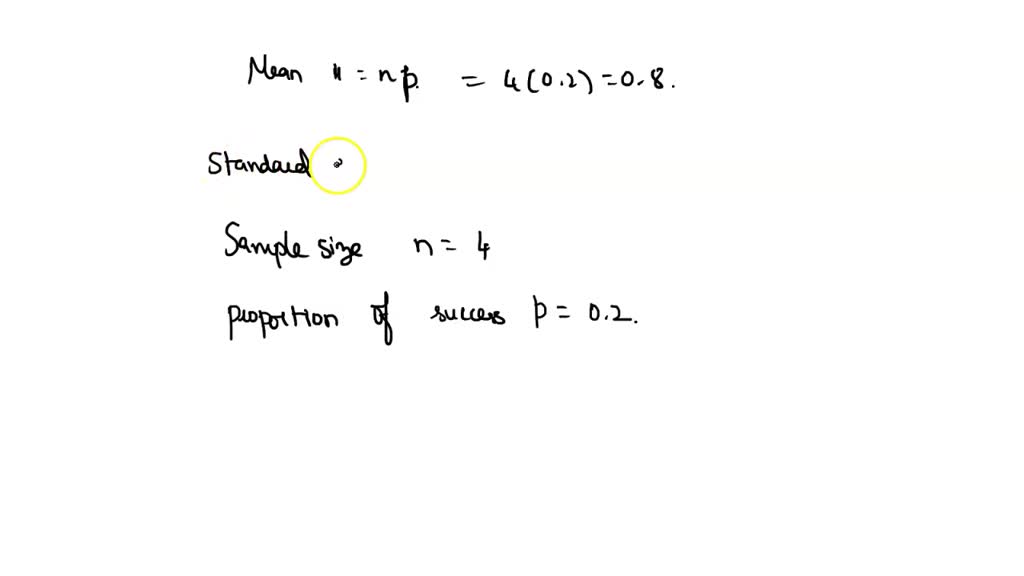 Mean μ = np = 4(0.2) = 0.8.
Standard
Sample size n = 4
proportion of success p = 0.2.